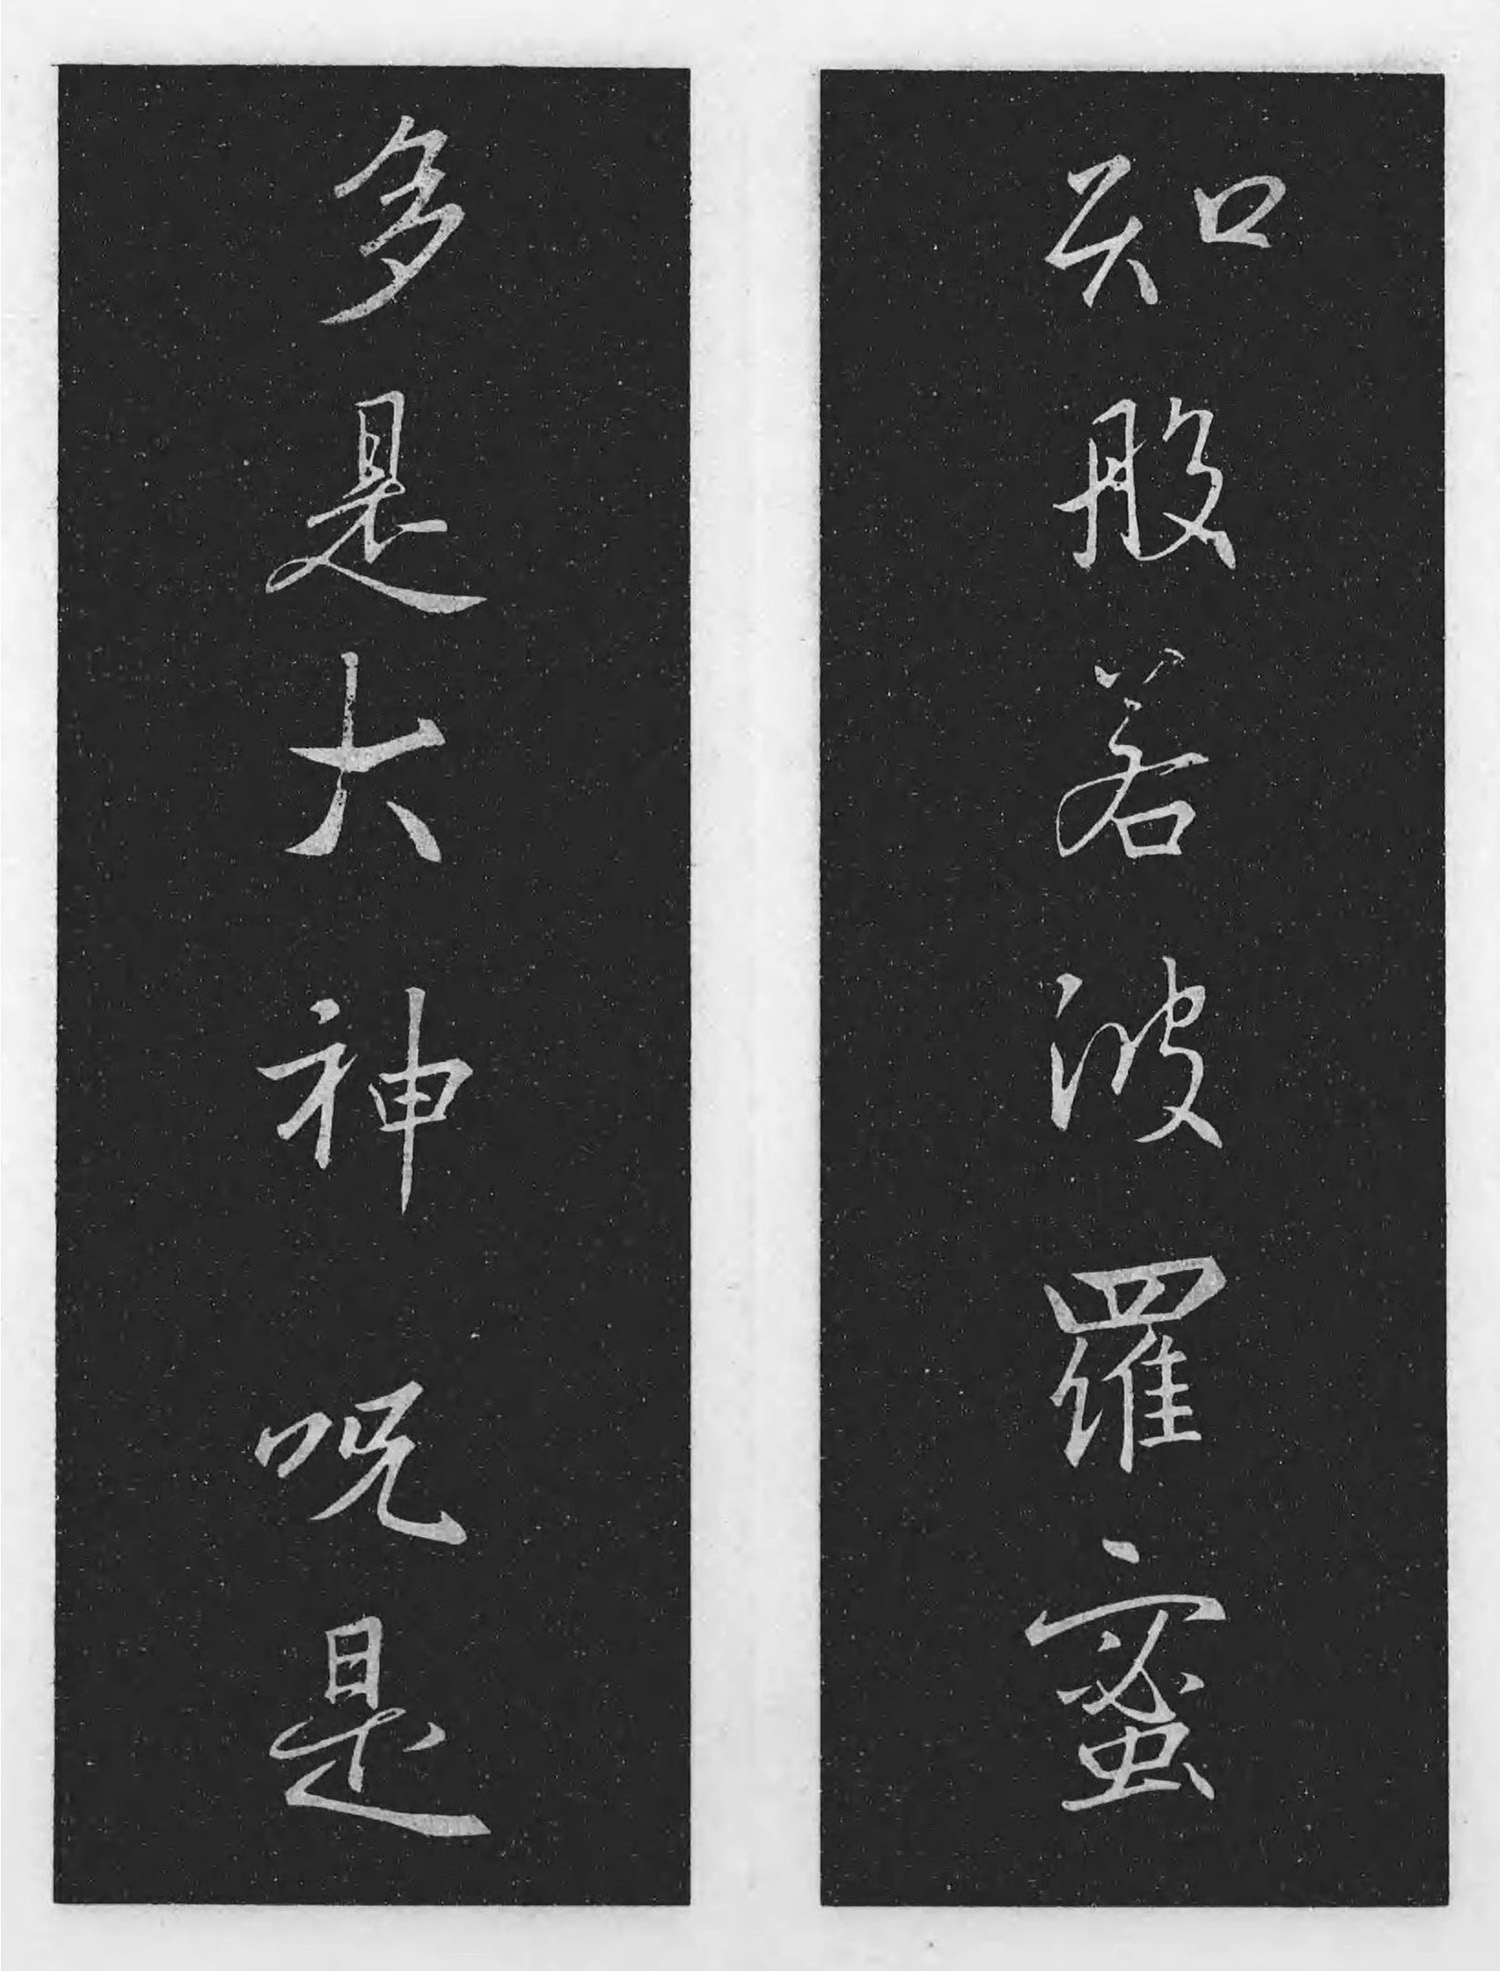 知般若波羅蜜
多是大神呪是